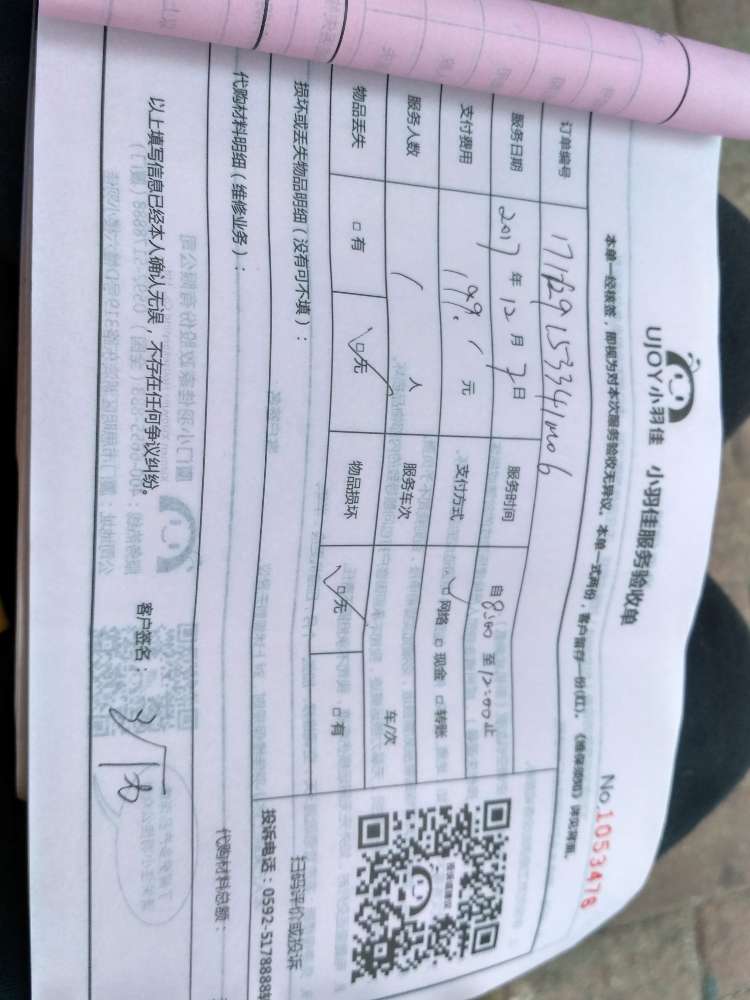 UJOY小羽佳 小羽佳服务验收单
No.1053478
本单一经核签，即视为对本次服务验收无异议，本单一式两份，客户留存一份(红)。《维保须知》详见背面。
订单编号
服务日期 2017 年 12 月 2 日 服务时间 自 8:00 至 12:00 止
支付费用 199. 元 支付方式 ☑ 网络 □ 现金 □ 转账
服务人数 1 人 服务车次 车/次
物品丢失 □ 有 ☑ 无 物品损坏 ☑ 无 □ 有
损坏或丢失物品明细（没有可不填）：
扫码评价或投诉
投诉电话：0592-5178888转
代购材料明细（维修业务）：
代购材料总额：
以上填写信息已经本人确认无误，不存在任何争议纠纷。
客户签名：